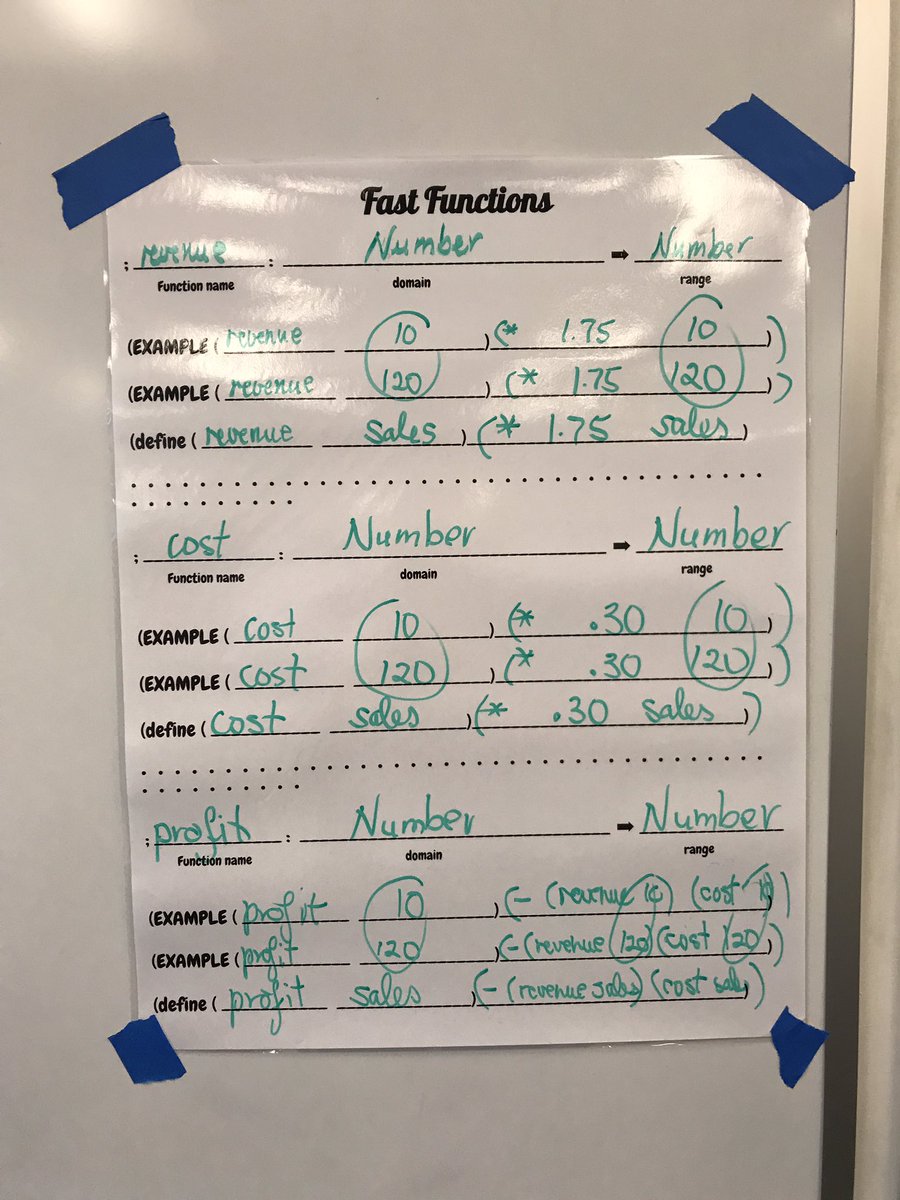 Fast Functions
; revenue : Number → Number
Function name domain range
(EXAMPLE ( revenue 10 ) (* 1.75 10 ))
(EXAMPLE ( revenue 120 ) (* 1.75 120 ))
(define ( revenue sales ) (* 1.75 sales )
; cost : Number → Number
Function name domain range
(EXAMPLE ( cost 10 ) (* .30 10 ))
(EXAMPLE ( cost 120 ) (* .30 120 ))
(define ( cost sales ) (* .30 sales ))
; profit : Number → Number
Function name domain range
(EXAMPLE ( profit 10 ) (- (revenue 10) (cost 10) ))
(EXAMPLE ( profit 120 ) (- (revenue 120) (cost 120) ))
(define ( profit sales ) (- (revenue sales) (cost sales) )